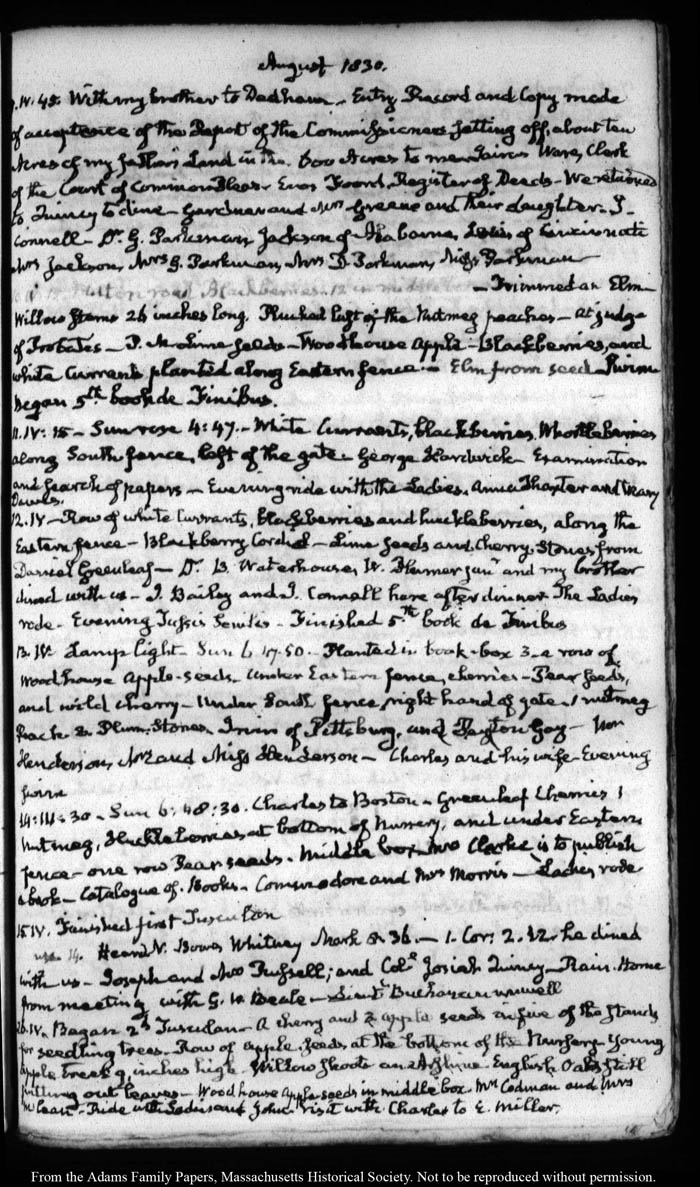 August 1830.
IV:45. With my brother to Dedham. Entry Record and Copy made
of acceptance of the Report of the Commissioners setting off, about ten
Acres of my father's Land in the 600 Acres to me. Jairus Ware, Clerk
of the Court of Common Pleas. Enos Foord, Register of Deeds. We returned
to Quincy to dine. Gardner and Mrs Greene and their daughter. J.
Connell. Dr. G. Parkman, Jackson of Alabama, of Cincinnati
Mrs Jackson, Mrs G. Parkman, Mrs D. Parkman, Miss Parkman
Trimmed an Elm
Willow Stems 26 inches long. Plucked last of the Nutmeg peaches. At judge
of Probates. lime seeds. Woodhouse Apple. Blackberries, and
white Currants planted along Eastern fence. Elm from seed
began 5th book de Finibus.
11. IV:15. Sun rose 4:47. White Currants, blackberries, Whortleberries
along South fence, left of the gate. George Hardwick. Examination
and search of papers. Evening ride with the Ladies. Anna Thaxter and Mary
Dawes.
12. IV. Row of white Currants, blackberries and huckleberries, along the
Eastern fence. Blackberry Cordial. Lime seeds and Cherry Stones from
Daniel Greenleaf. Dr. B. Waterhouse, W. junr and my brother
dined with us. J. Bailey and J. Connell here after dinner. The Ladies
rode. Evening Finished 5th book de Finibus
13. IV. Lamp light. Sun 6.47.50. Planted in book-box 3 a row of
Woodhouse Apple-seeds. Under Eastern fence, cherries. Pear seeds,
and wild cherry. Under South fence, right hand of gate, 1 nutmeg
Peach & Plum Stones. Irwin of Pittsburg, and Payton Gay.
Henderson, Mrs and Miss Henderson. Charles and his wife. Evening
14: III:30. Sun 6:48:30. Charles to Boston. Greenleaf Cherries 1
Nutmeg, Huckleberries at bottom of Nursery, and under Eastern
fence. one row Pear seeds. Middle box. Mrs Clarke is to publish
a book. Catalogue of Books. Commodore and Mrs Morris. Ladies rode
15. IV. Finished first Tusculan
Heard N. Bowes Whitney Mark 8.36. 1. Cor: 2.12. he dined
with us. Joseph and Mrs Russell; and Col. Josiah Quincy. Rain. Home
from meeting with G. W. Beale. Lieutt Buchanan unwell
16. IV. Began 2d Tusculan. A cherry and 2 apple seeds in five of the Stands
for seedling trees. Row of apple seeds at the bottom of the Nursery. Young
apple trees 9 inches high. Willow shoots English Oaks still
putting out leaves. Woodhouse Apple seeds in middle box. Mr Codman and Mrs
McLean. Ride with Ladies and John. Visit with Charles to E. Miller.
From the Adams Family Papers, Massachusetts Historical Society. Not to be reproduced without permission.